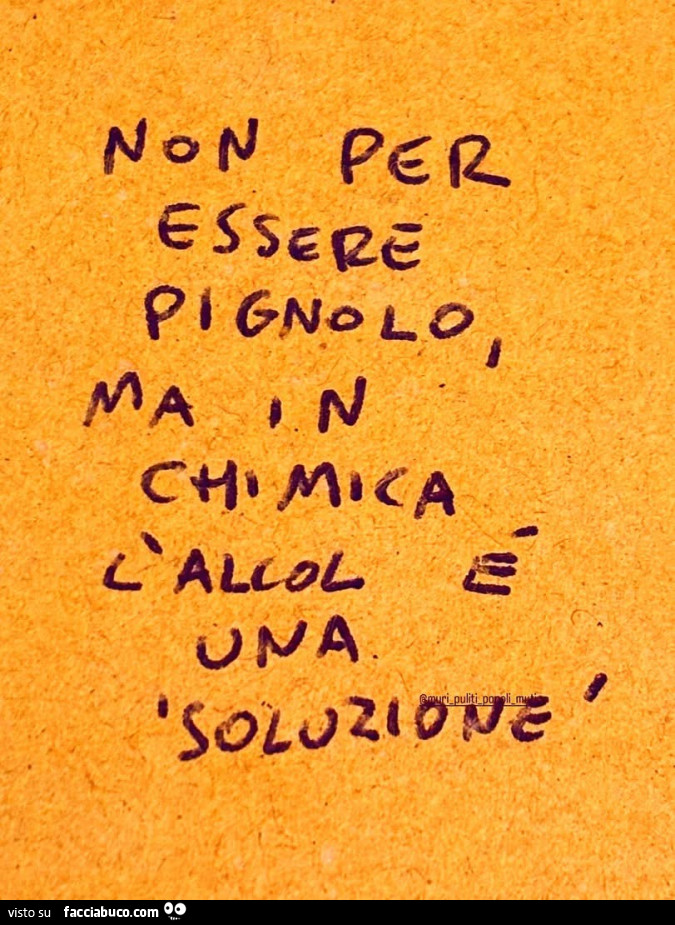 NON PER
ESSERE
PIGNOLO,
MA IN
CHIMICA
L'ALCOL É
UNA
@muri_puliti_popoli_muti
'SOLUZIONE'
visto su facciabuco.com